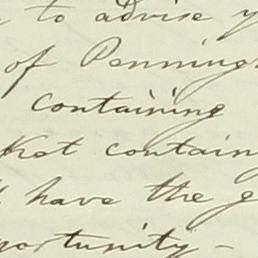 to advise y
of Penning
containing
ket contain
have the g
portunity -